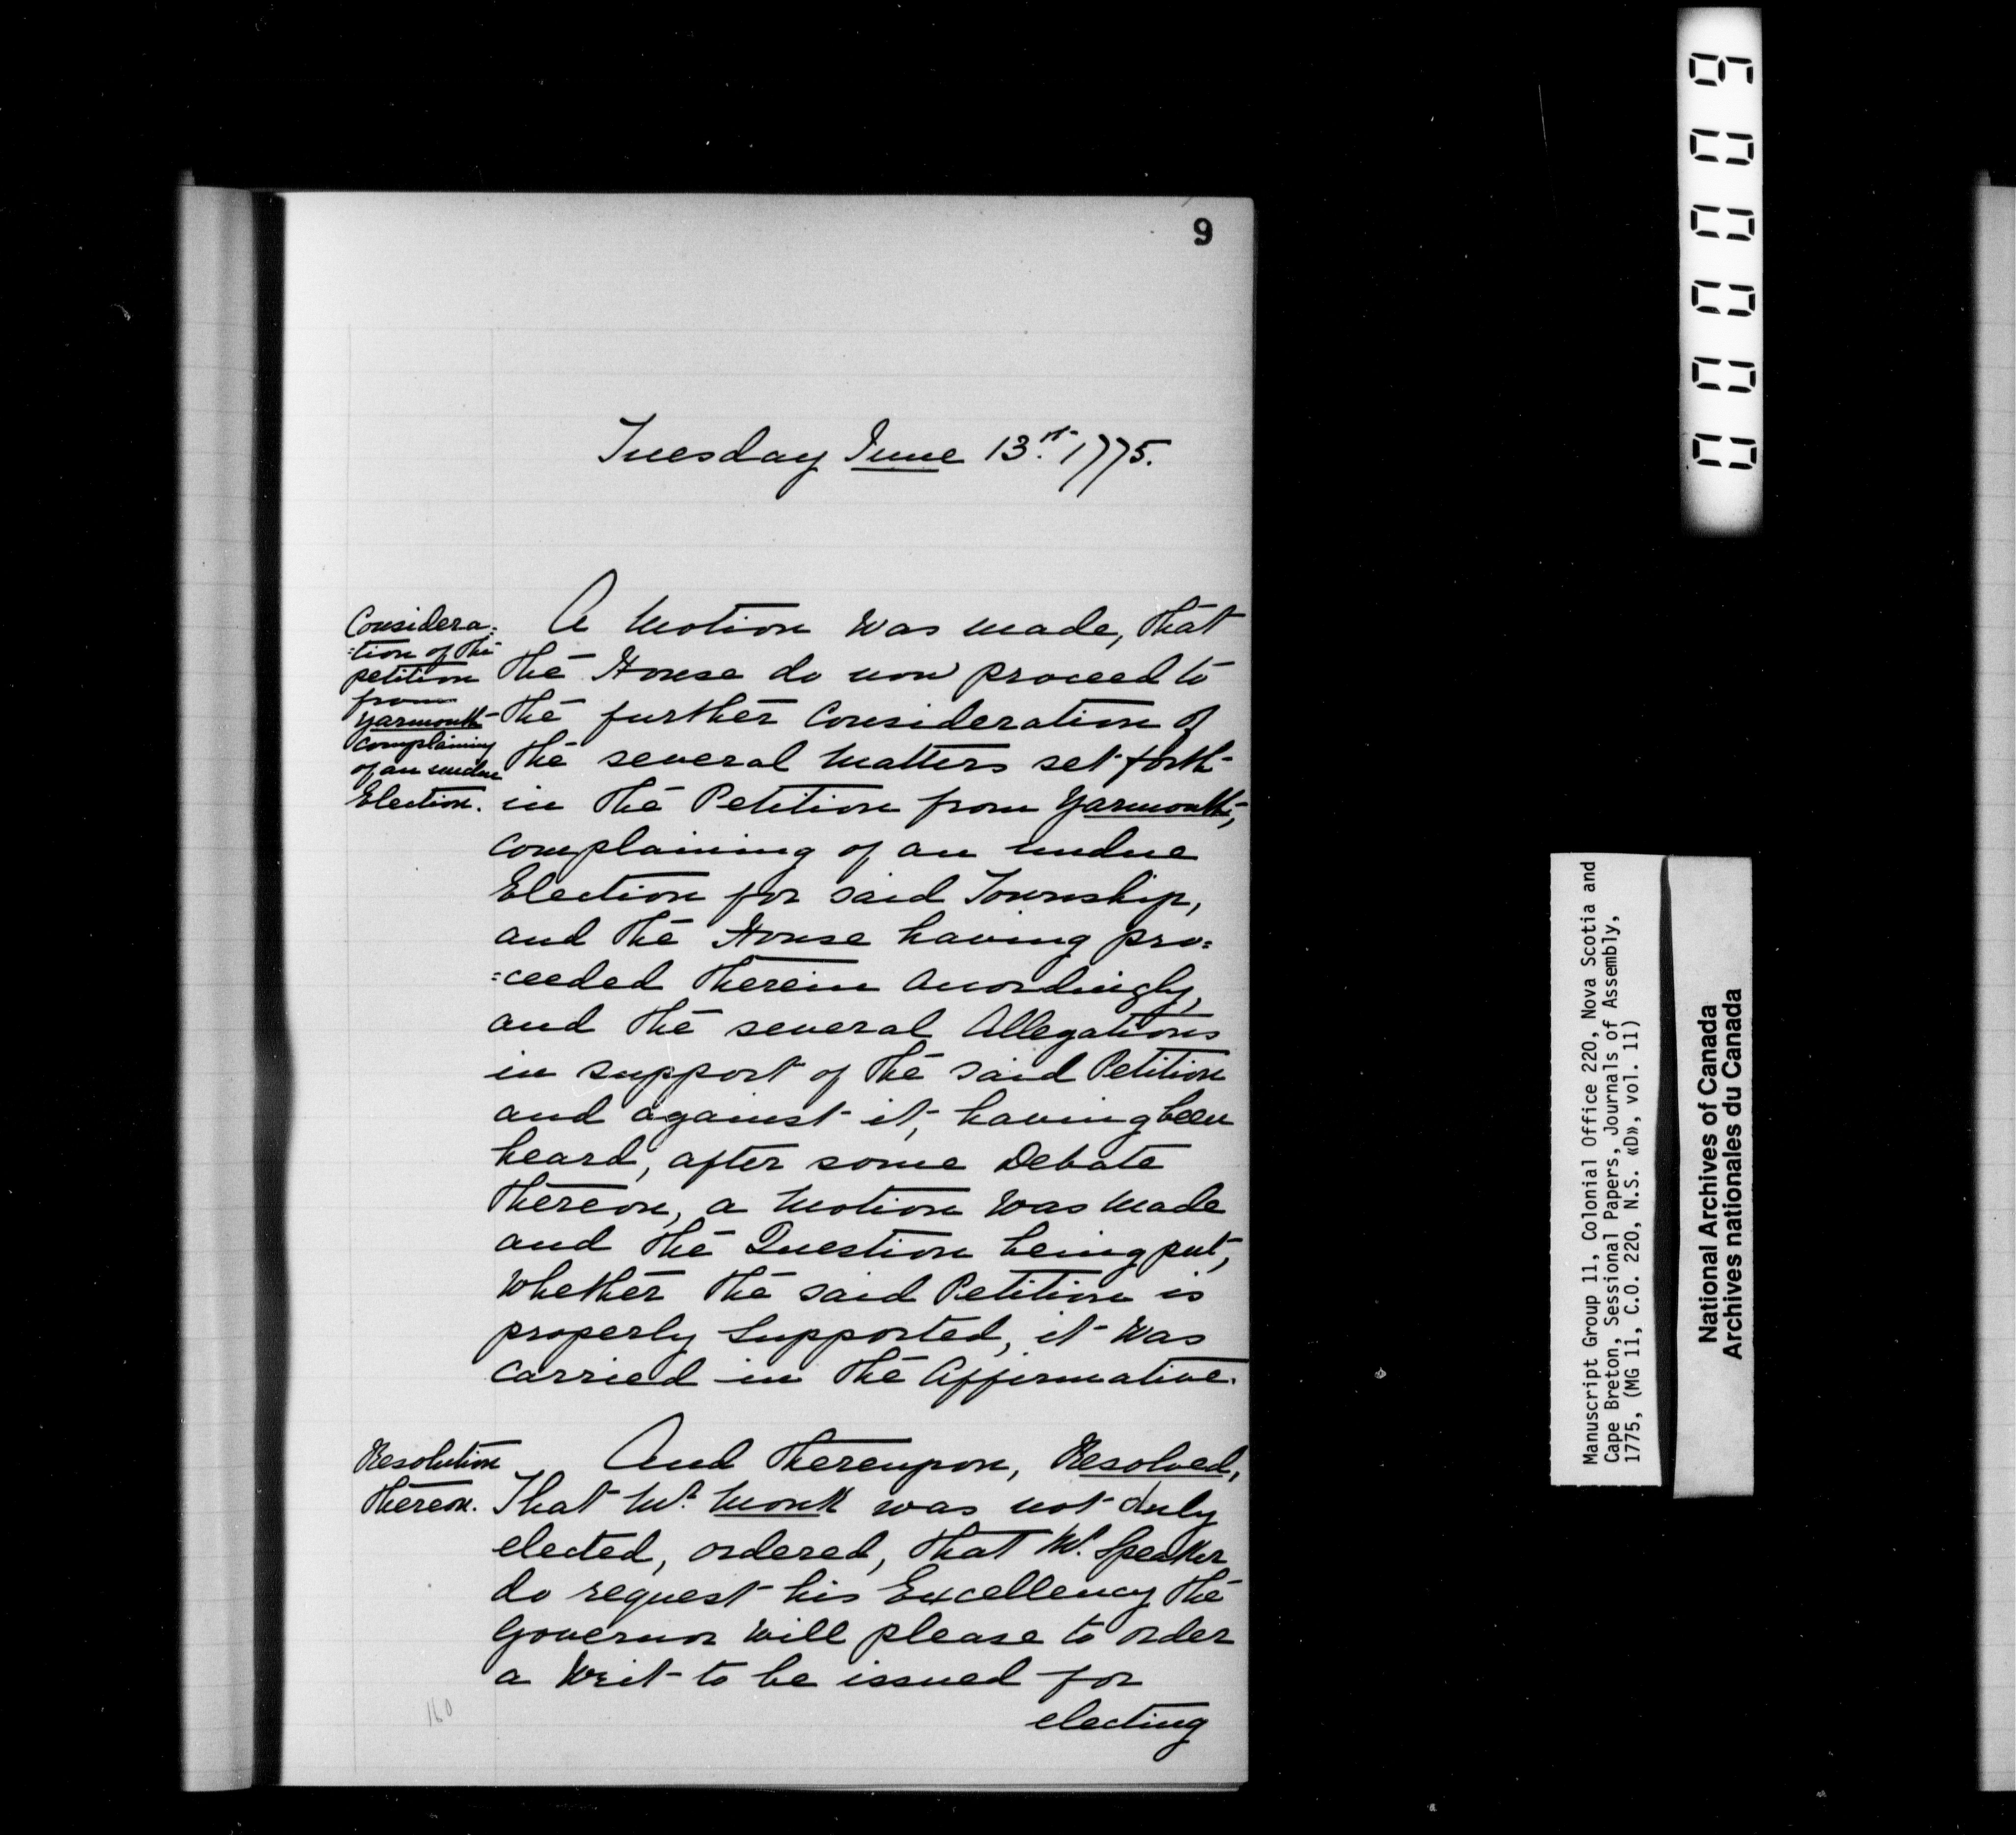 9
Tuesday June 13.th 1775.
Considera=
=tion of the
petition
from
Yarmouth
complaining
of an undue
Election.
A Motion was made, that
the House do now proceed to
the further Consideration of
the several Matters set forth
in the Petition from Yarmouth,
complaining of an undue
Election for said Township,
and the House having pro=
=ceeded therein accordingly,
and the several Allegations
in support of the said Petition
and against it, having been
heard, after some Debate
thereon, a Motion was made
and the Question being put,
whether the said Petition is
properly Supported, it was
carried in the Affirmative.
Resolution
thereon.
And thereupon, Resolved,
That Mr. Monk was not duly
elected, ordered, that Mr. Speaker
do request his Excellency the
Governor will please to order
a Writ to be issued for
electing
160
000009
Manuscript Group 11, Colonial Office 220, Nova Scotia and
Cape Breton, Sessional Papers, Journals of Assembly,
1775, (MG 11, C.O. 220, N.S. «D», vol. 11)
National Archives of Canada
Archives nationales du Canada